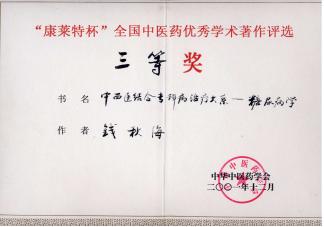 “康莱特杯”全国中医药优秀学术著作评选
三等奖
书名 中西医结合专科病治疗大系－糖尿病学
作者 钱秋海
中华中医药学会
二〇〇一年十二月